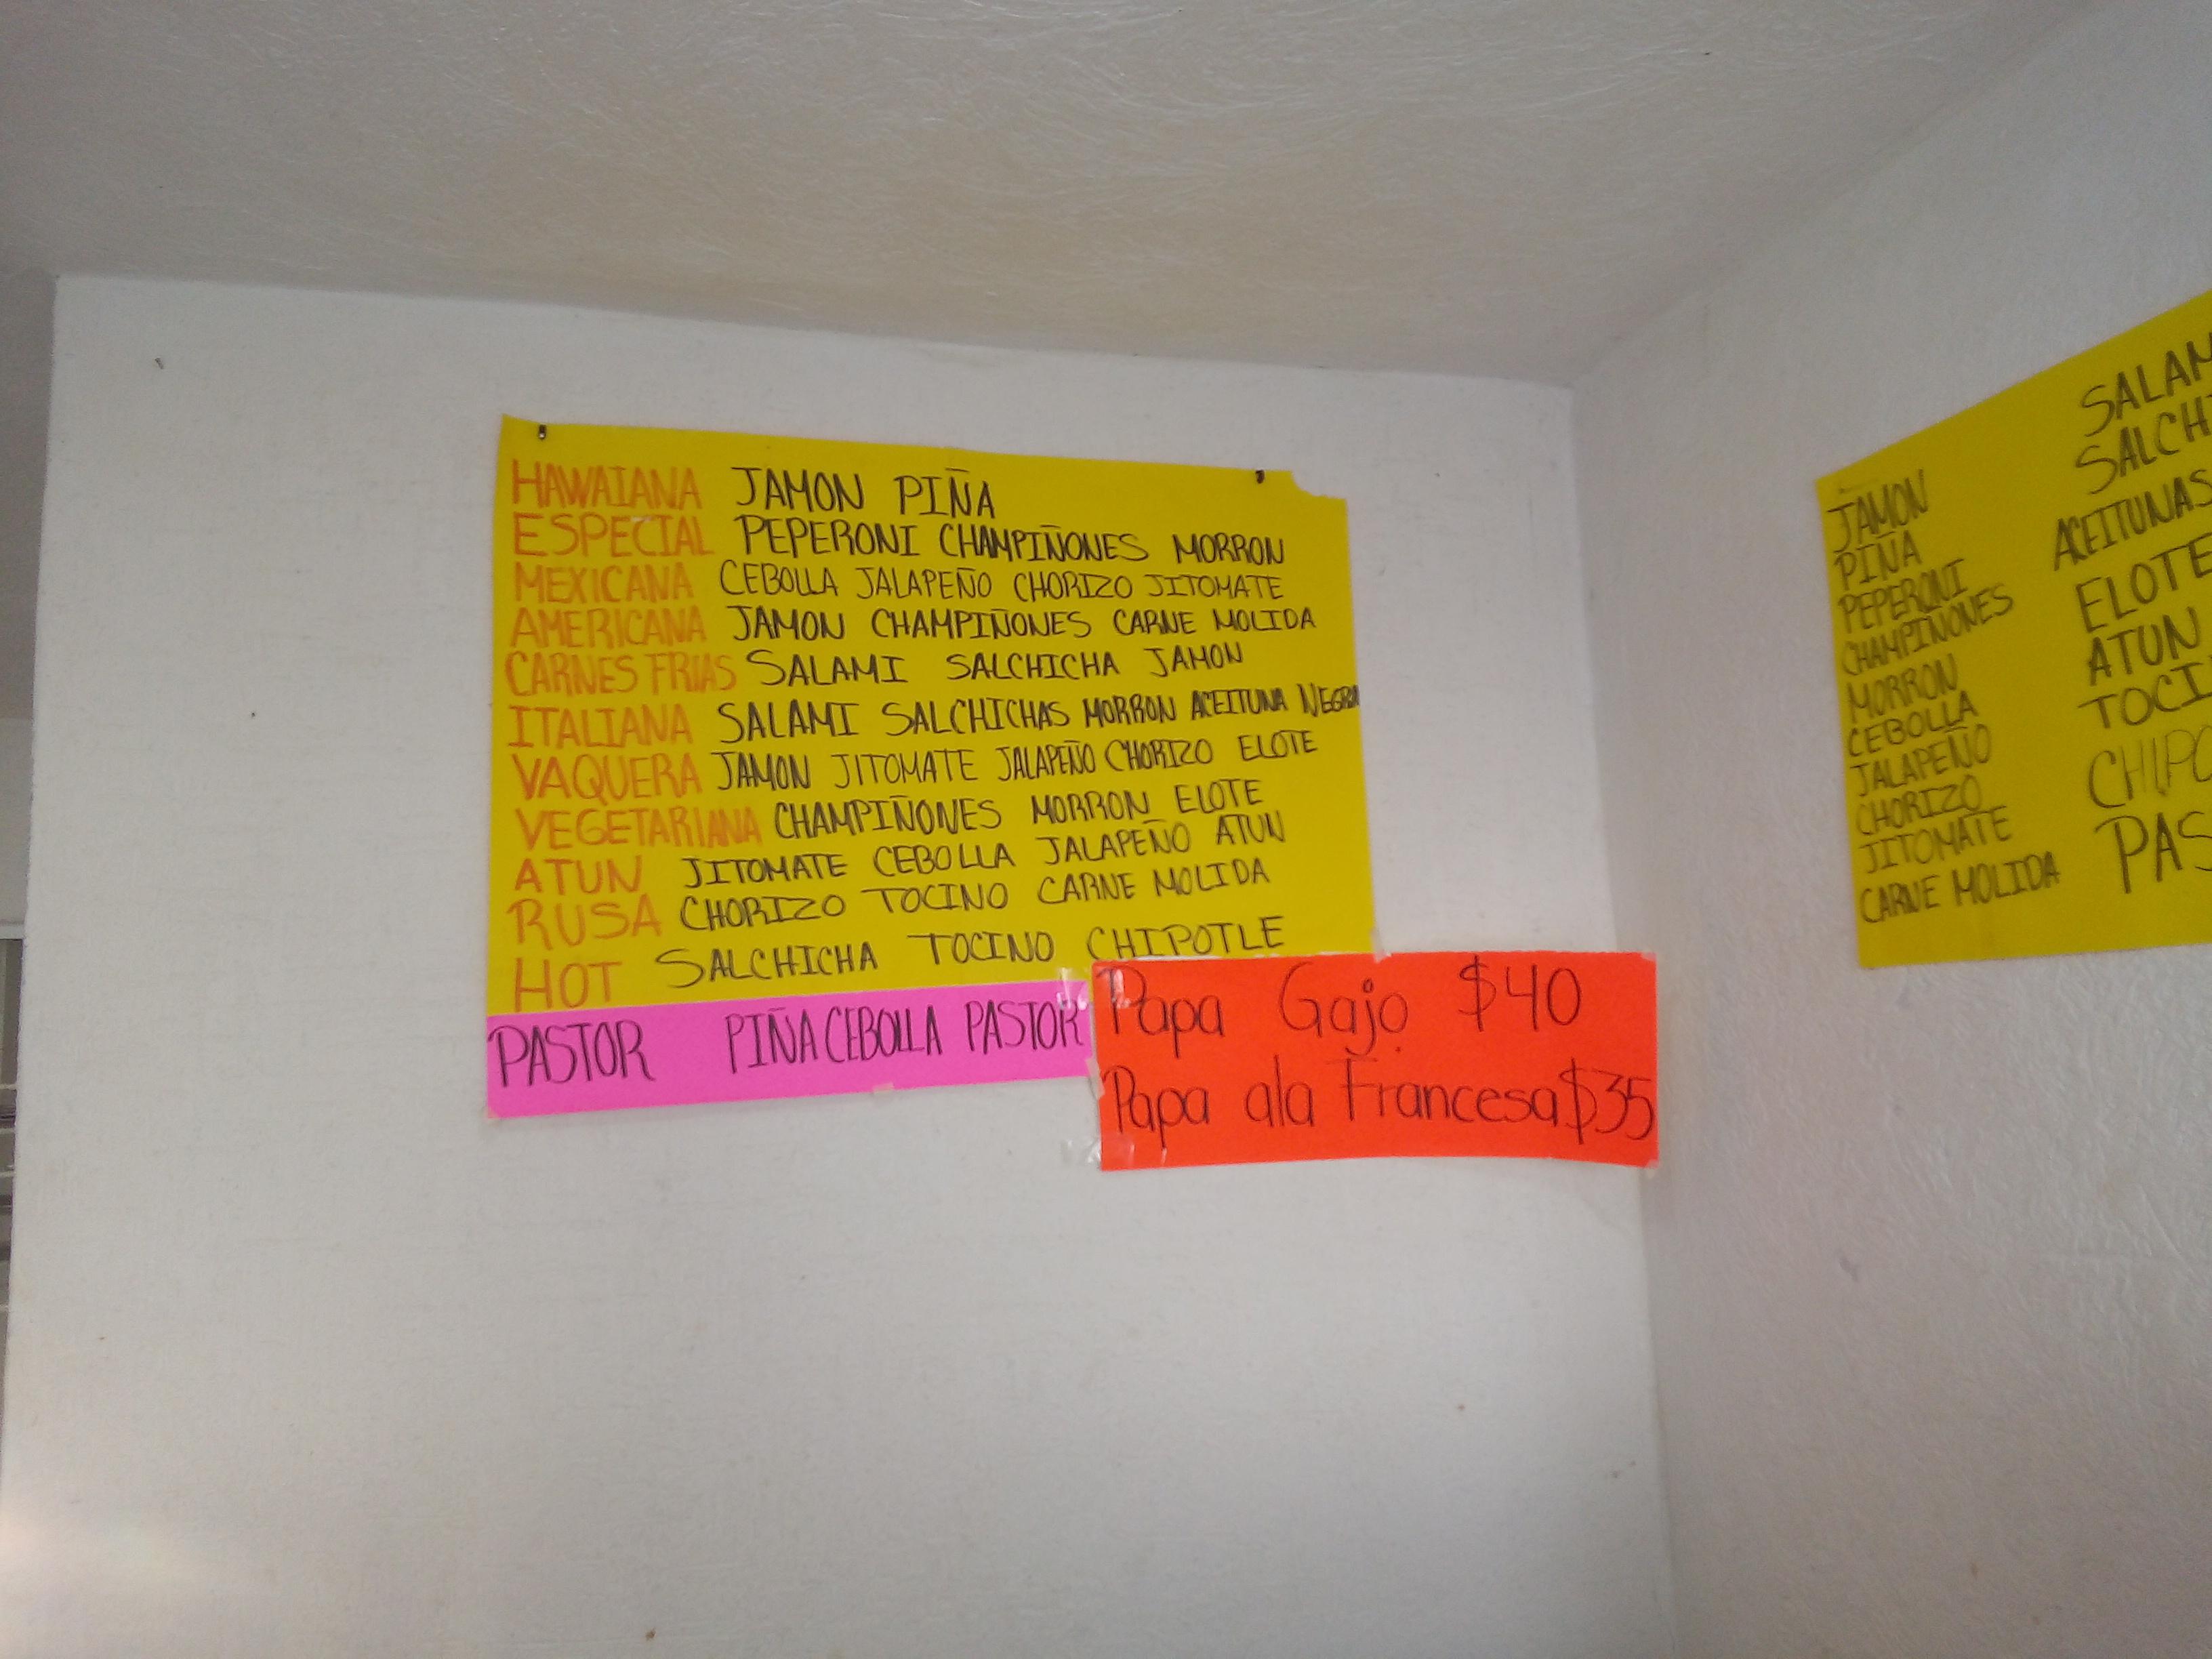 HAWAIANA JAMON PIÑA
ESPECIAL PEPERONI CHAMPIÑONES MORRON
MEXICANA CEBOLLA JALAPEÑO CHORIZO JITOMATE
AMERICANA JAMON CHAMPIÑONES CARNE MOLIDA
CARNES FRIAS SALAMI SALCHICHA JAMON
ITALIANA SALAMI SALCHICHAS MORRON ACEITUNA NEGRA
VAQUERA JAMON JITOMATE JALAPEÑO CHORIZO ELOTE
VEGETARIANA CHAMPIÑONES MORRON ELOTE
ATUN JITOMATE CEBOLLA JALAPEÑO ATUN
RUSA CHORIZO TOCINO CARNE MOLIDA
HOT SALCHICHA TOCINO CHIPOTLE
PASTOR PIÑA CEBOLLA PASTOR
Papa Gajo $40
Papa ala Francesa $35
JAMON
PIÑA
PEPERONI
CHAMPIÑONES
MORRON
CEBOLLA
JALAPEÑO
CHORIZO
JITOMATE
CARNE MOLIDA
ACEITUNAS
ELOTE
ATUN